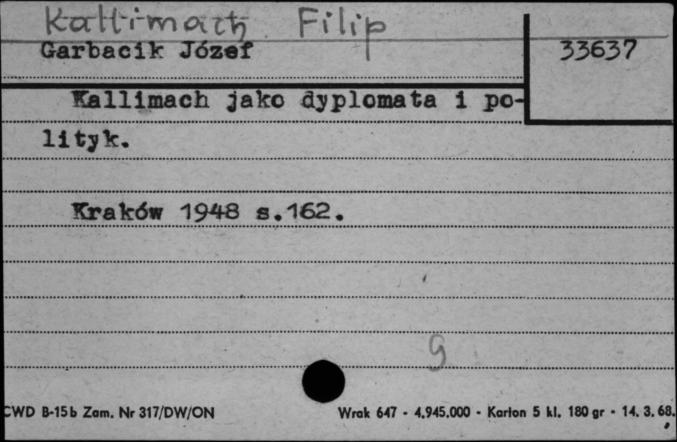 Kallimach Filip
Garbacik Józef
33637
Kallimach jako dyplomata i po-
lityk.
Kraków 1948 s.162.
g
CWD B-15b Zam. Nr 317/DW/ON
Wrak 647 - 4.945.000 - Karton 5 kl. 180 gr - 14. 3. 68.